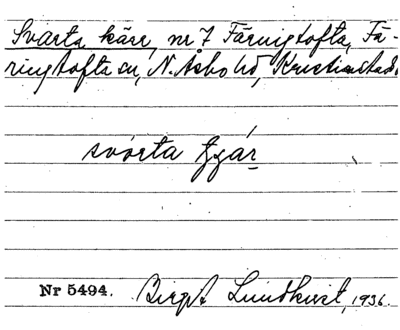 Svarta kärr, nr 7 Färingtofta, Fä-
ringtofta sn, N. Åsbo hd, Kristianstads.
svarta
Nr 5494. Birgit Lundkvist, 1936.